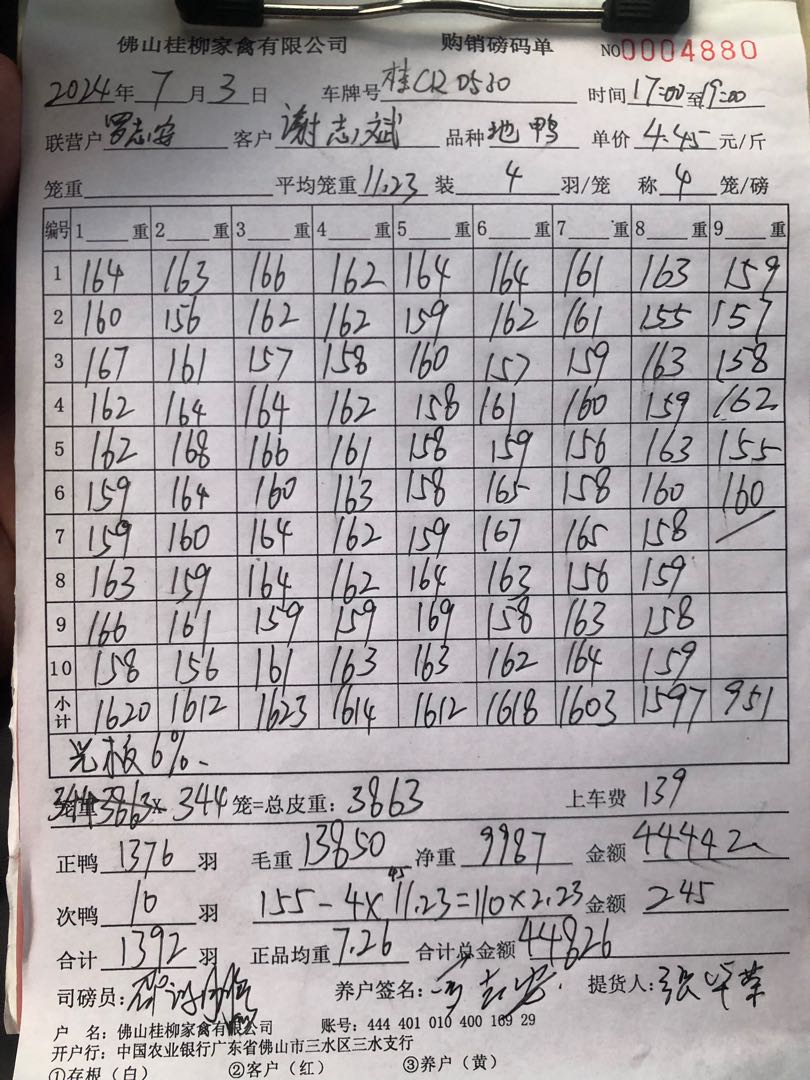 佛山桂柳家禽有限公司 购销磅码单 NO0004880
2024年7月3日 车牌号 桂CR0530 时间17:00至19:00
联营户 罗志安 客户 谢志斌 品种 地鸭 单价 4.45 元/斤
笼重 平均笼重 11.23 装 4 羽/笼 称 4 笼/磅
编号 1 重 2 重 3 重 4 重 5 重 6 重 7 重 8 重 9 重
1 164 163 166 162 164 164 161 163 159
2 160 156 162 162 159 162 161 155 157
3 167 161 157 158 160 157 159 163 158
4 162 164 164 162 158 161 160 159 162
5 162 168 166 161 158 159 156 163 155
6 159 164 160 163 158 165 158 160 160
7 159 160 164 162 159 167 165 158
8 163 159 164 162 164 163 156 159
9 166 161 159 159 169 158 163 158
10 158 156 161 163 163 162 164 159
小计 1620 1612 1623 1614 1612 1618 1603 1597 951
光板6%.
笼重 x 344 笼=总皮重: 3863 上车费 139
正鸭 1376 羽 毛重 13850 净重 9987 金额 44442
次鸭 10 羽 155-4x11.23=110x2.23 金额 245
合计 1392 羽 正品均重 7.26 合计总金额 44826
司磅员: 养户签名: 提货人: 张华荣
户 名: 佛山桂柳家禽有限公司 账号: 444 401 010 400 169 29
开户行: 中国农业银行广东省佛山市三水区三水支行
①存根(白) ②客户(红) ③养户(黄)